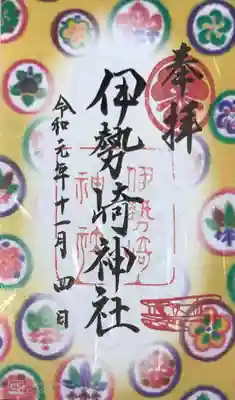 奉拝
伊勢崎神社
伊勢崎
神社
令和元年十一月四日